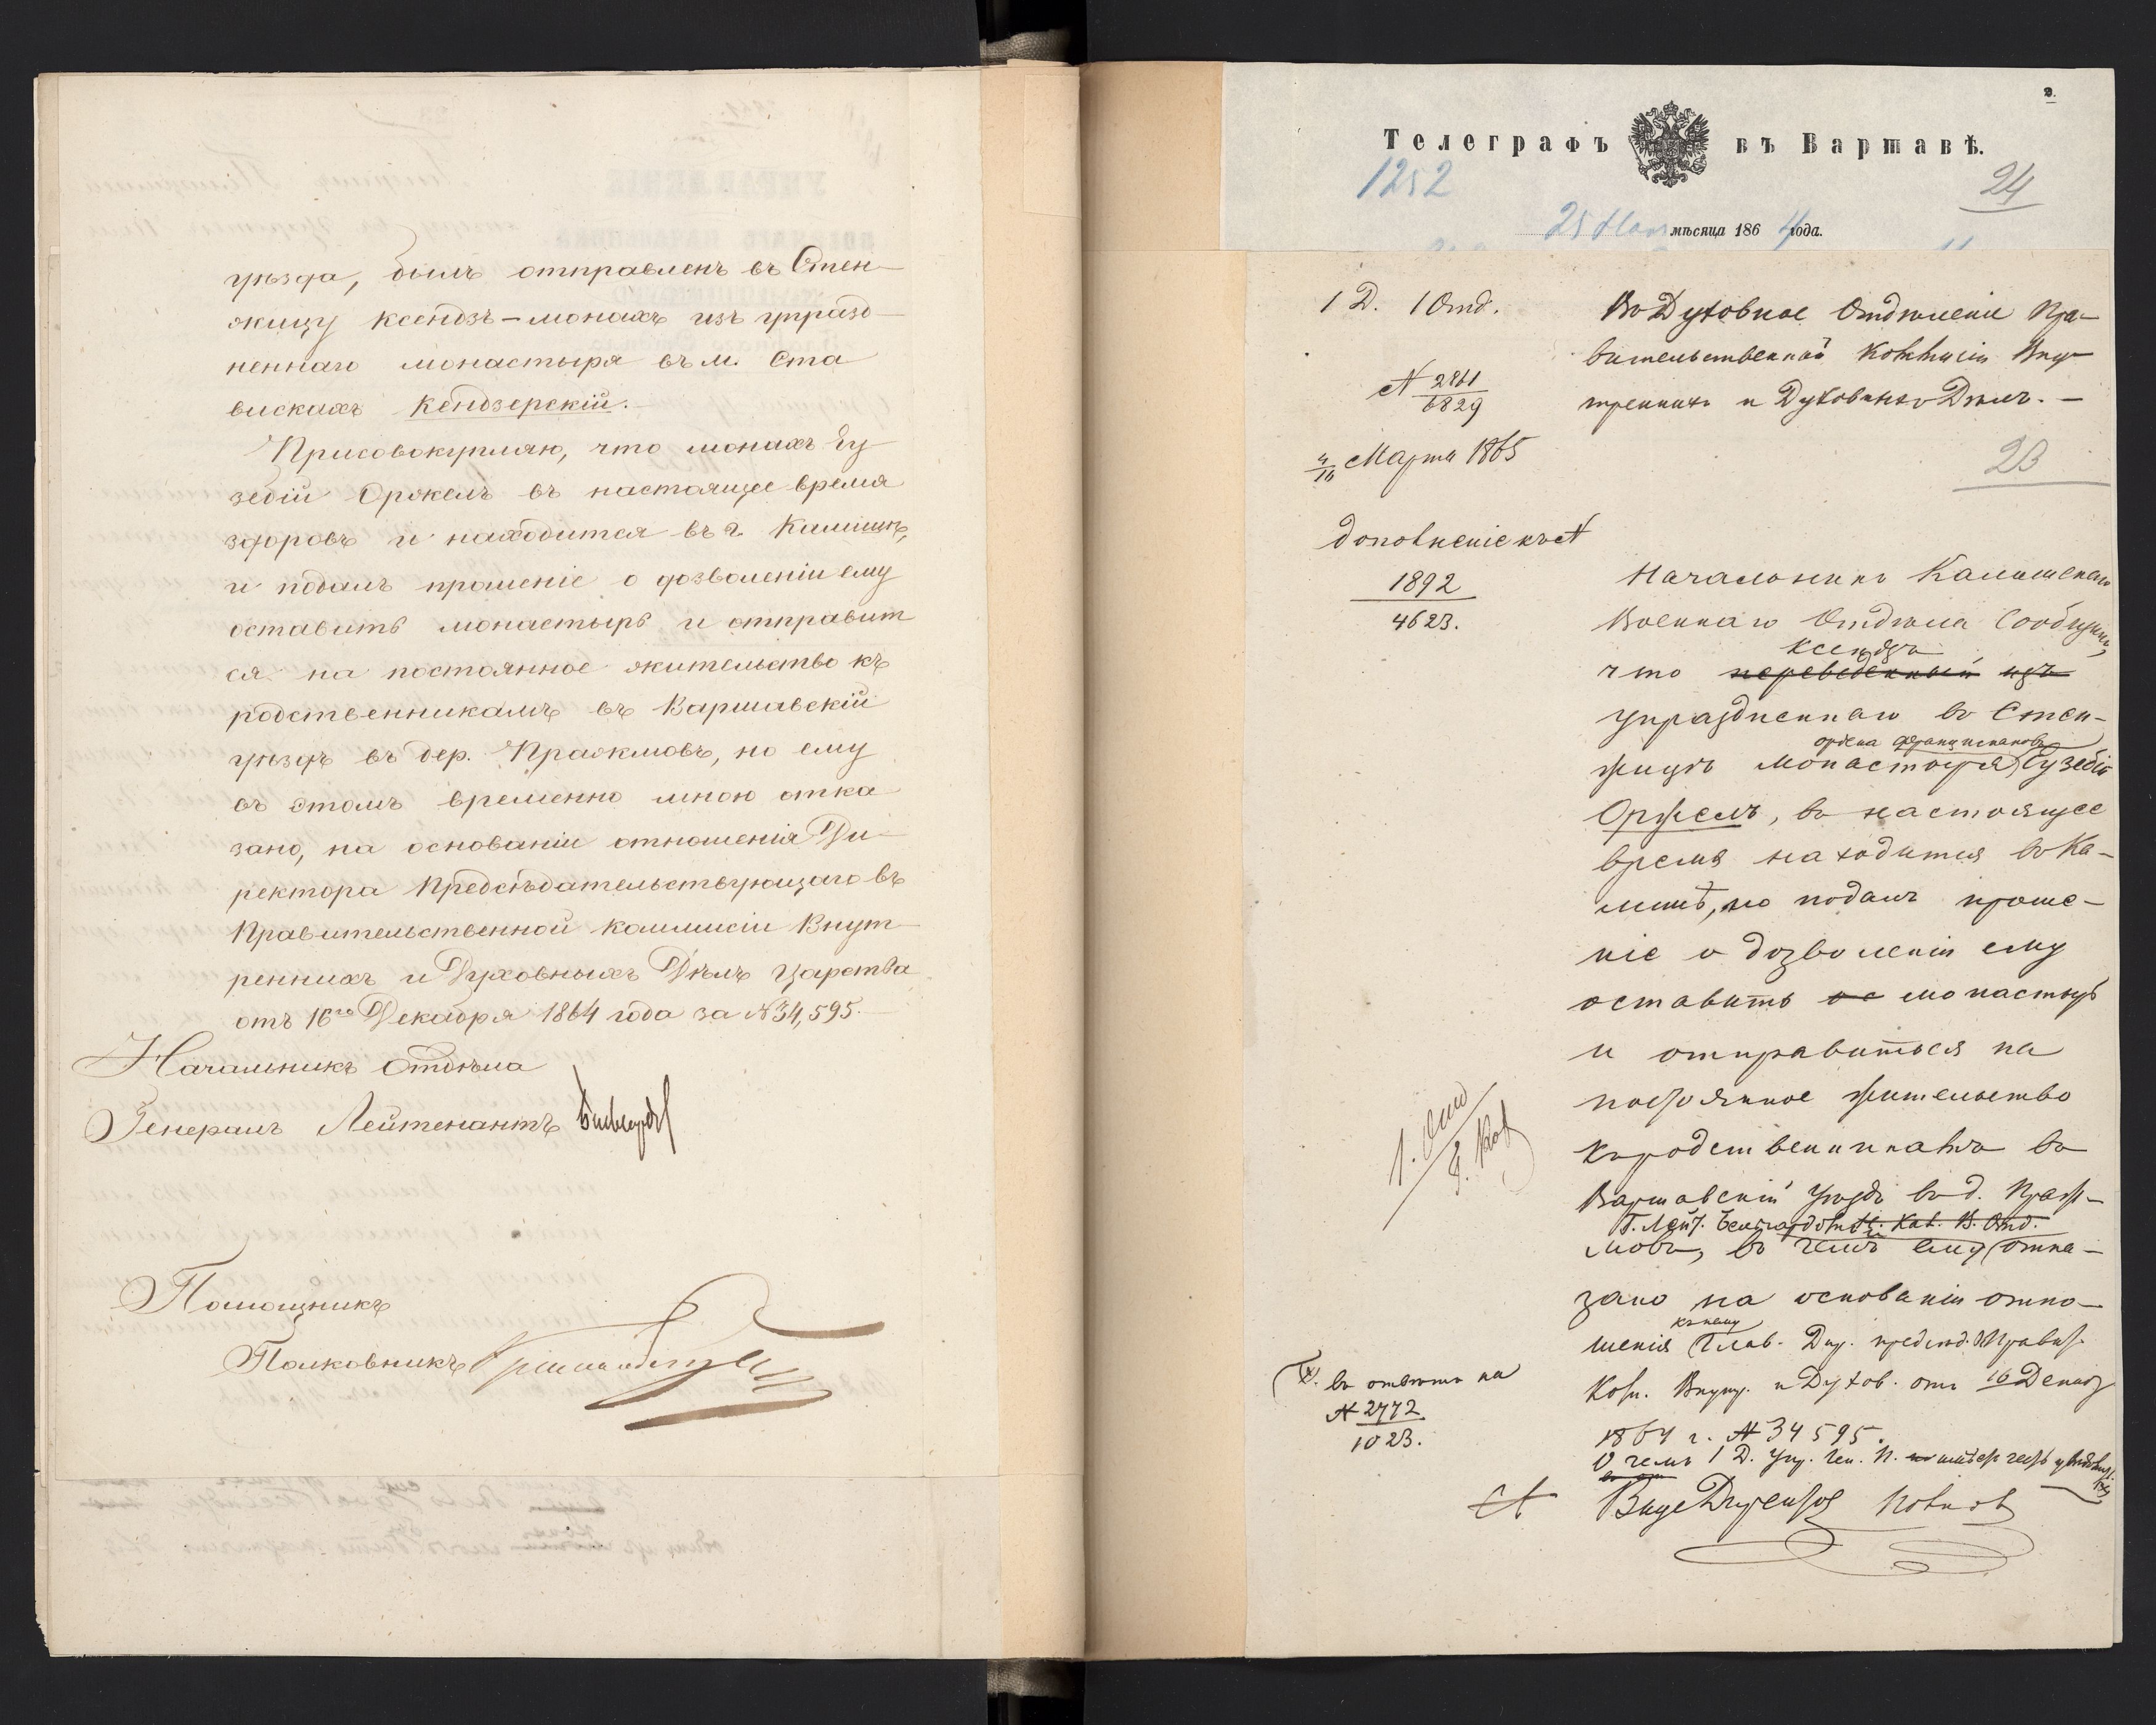 уѣзда, былъ отправленъ въ Стен-
жицу ксендзъ-монахъ изъ упразд-
неннаго монастыря въ м. Ста
вискахъ Кендзерскій.
Присовокупляю, что монахъ Еу-
зебій Оржелъ въ настоящее время
здоровъ и находится въ г. Калишѣ,
и подалъ прошеніе о дозволеніи ему
оставить монастырь и отправит
ся на постоянное жительство къ
родственникамъ въ Варшавскій
уѣздъ въ дер. Пражмовъ, но ему
въ этомъ временно мною отка
зано, на основаніи отношенія Ди-
ректора Предсѣдательствующаго въ
Правительственной Коммисіи Внут-
реннихъ и Духовныхъ Дѣлъ Царства
отъ 16го Декабря 1864 года за №34,595.
Начальникъ Отдѣла
Генералъ Лейтенантъ
Помощникъ
Полковникъ
2.
Телеграфъ въ Варшавѣ.
1252
24
25 мѣсяца 1864 года.
1 Д. 1 Отд.
№ 2861
6829
4/16 Марта 1865
дополненіе къ №
1892
4623.
Въ Духовное Отдѣленіе Пра-
вительственной Коммисіи Вну-
треннихъ и Духовныхъ Дѣлъ. —
23
Начальникъ Калишскаго
Военнаго Отдѣла сообщилъ,
ксендзъ
что переведенный изъ
упраздненнаго въ Стен-
ордена францискановъ
жицѣ монастыря Еузебій
Оржелъ, въ настоящее
время находится въ Ка-
лишѣ, но подалъ проше-
ніе о дозволеніи ему
оставить ос монастырь
и отправиться на
постоянное жительство
къ родственникамъ въ
Варшавскій Уѣздъ въ д. Праж-
Г. Лейт. Бельгардомъ Н. Кал. В. Отд.
мовъ, въ чемъ ему отка-
зано на основаніи отно-
къ нему
шенія Глав. Дир. предсѣд. въ Правит.
Ком. Внутр. и Духов. отъ 16 Декаб
1864 г. № 34595.
О чемъ 1 Д. Упр. Ген. П. имѣетъ честь увѣдомить
Вице Директоръ
X. въ отвѣтъ на
№ 2772
1023.